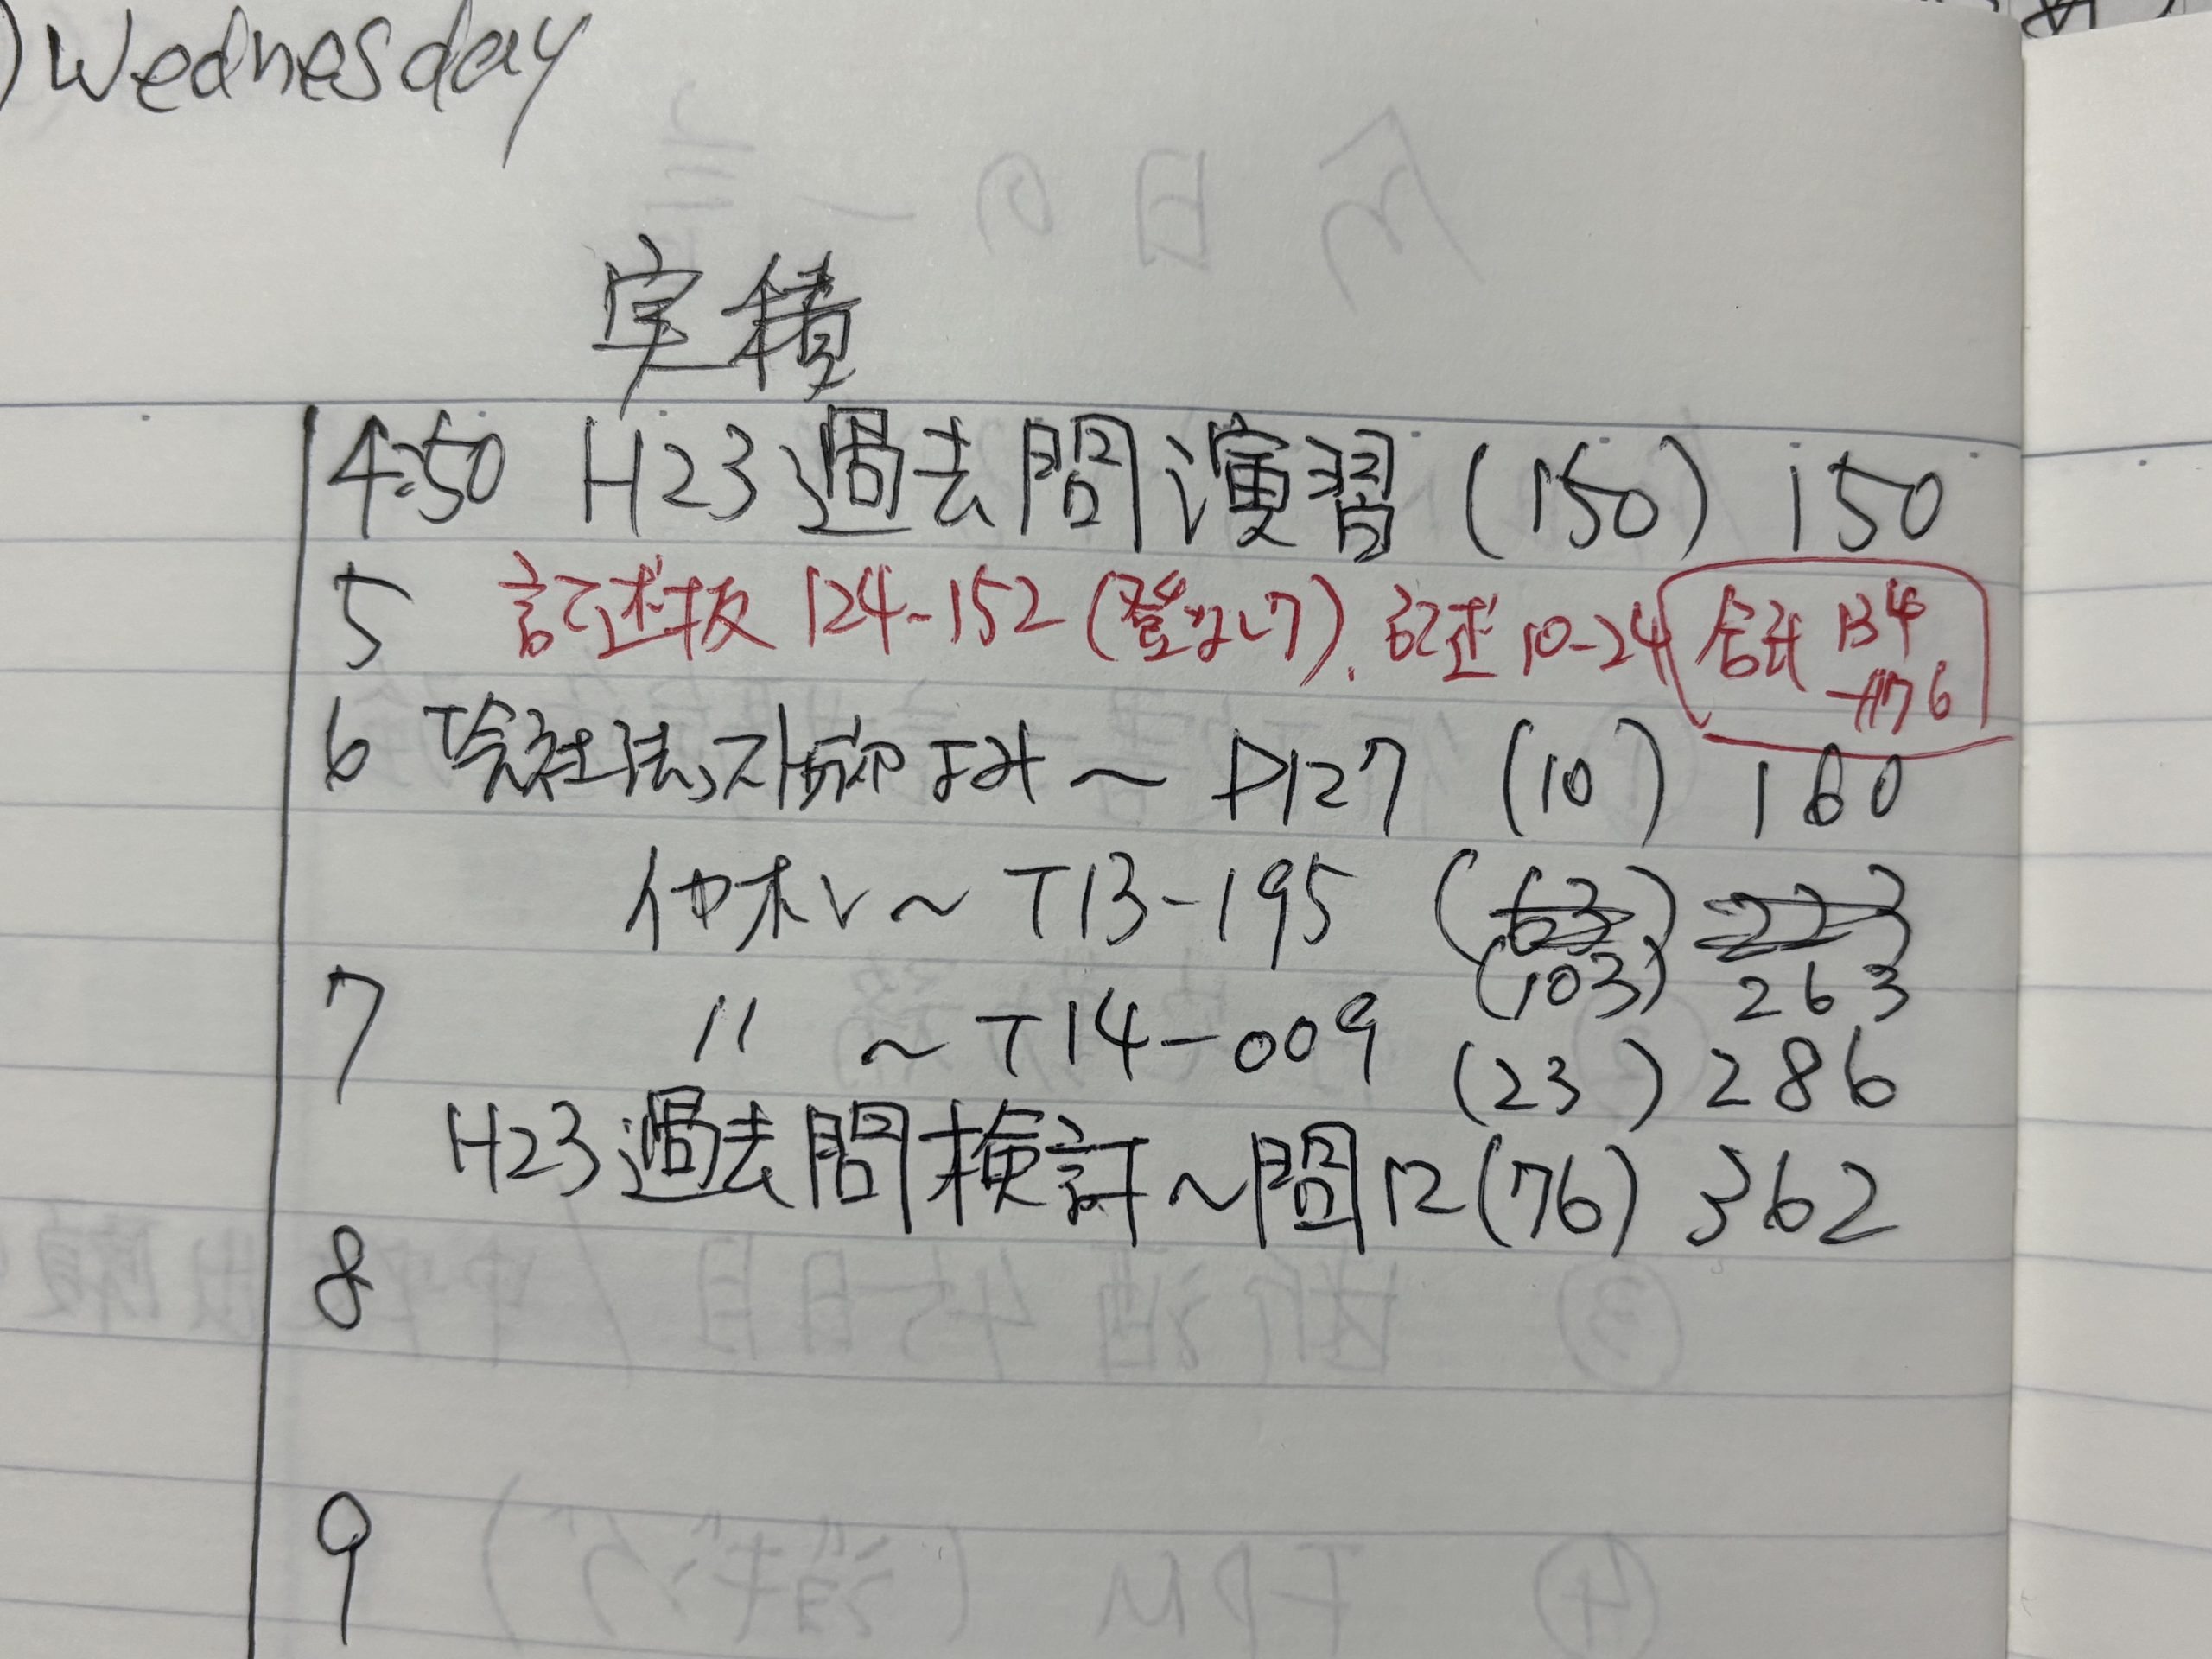 ) Wednesday
実積
4:50 H23過去問演習 (150) 150
5 記述抜 124-152 (登ないり). 記述 10-24 合計 134-176
6 会社法テキストよみ 〜 P127 (10) 160
〜 T13-195 (63) 223
(103) 263
7 〃 〜 T14-009 (23) 286
H23過去問検討〜問12 (76) 362
8
9